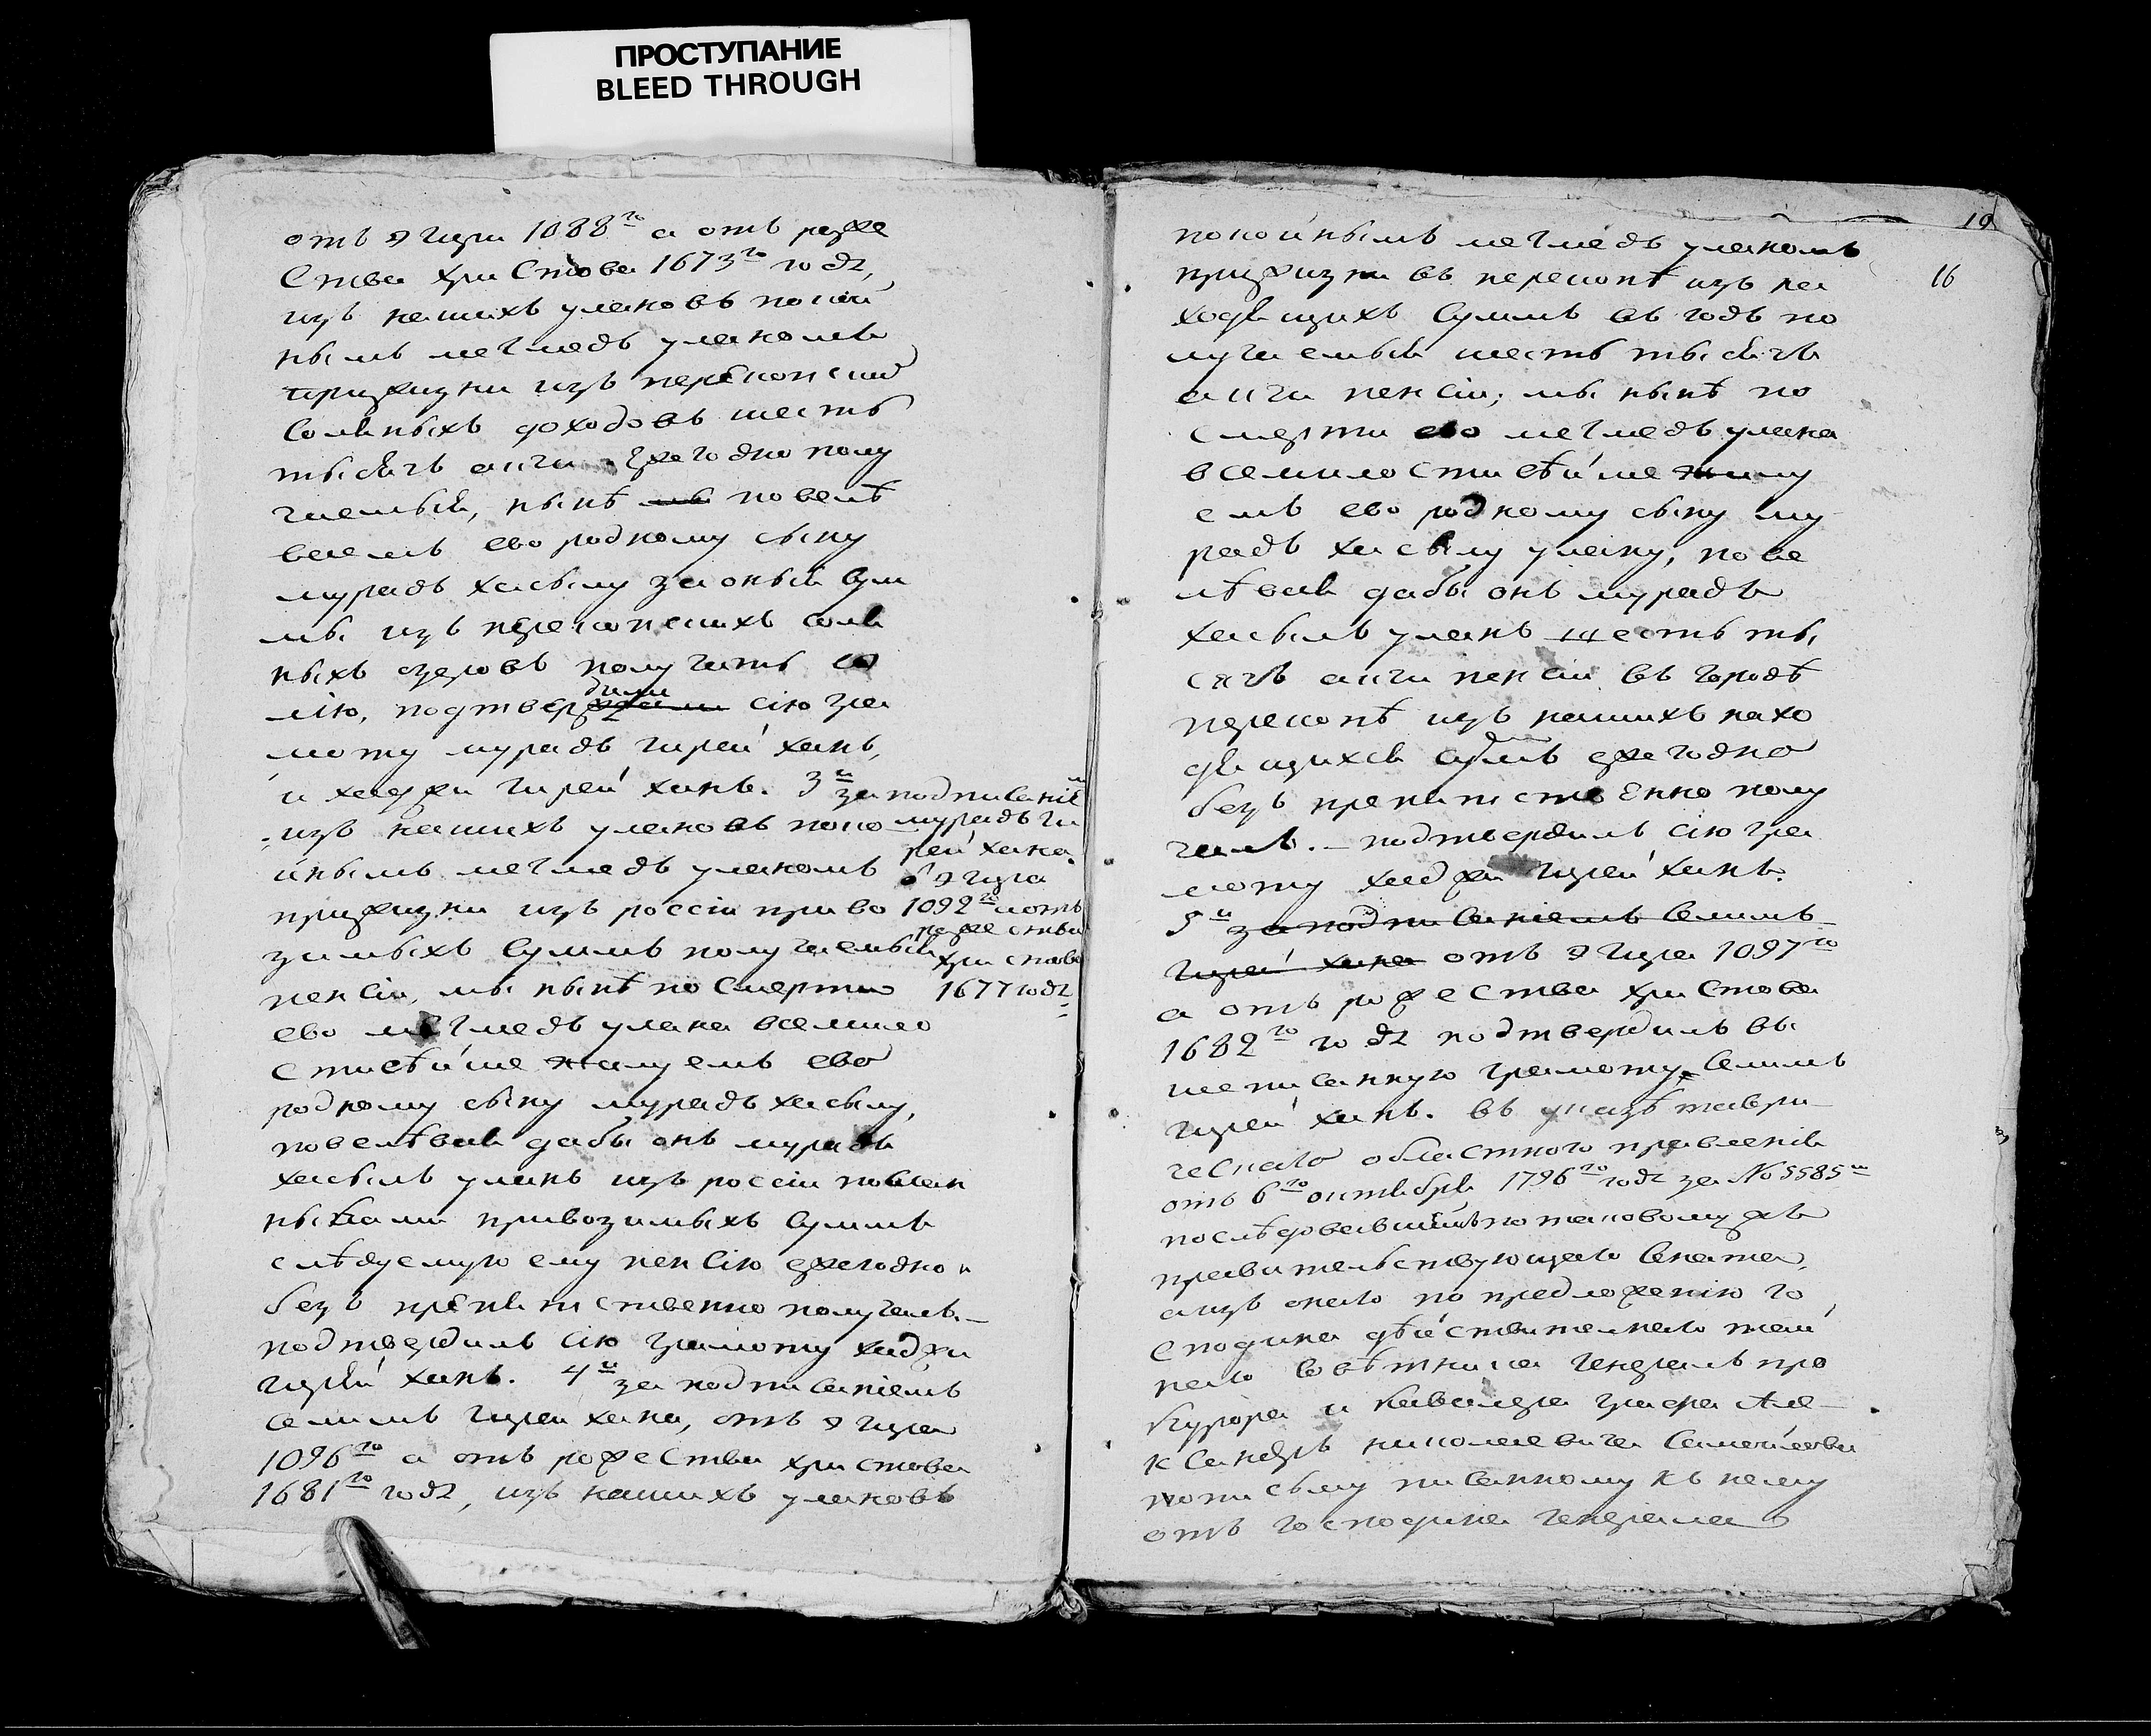 ПРОСТУПАНИЕ
BLEED THROUGH
отъ эгиры 1088го а отъ рожде
ства христова 1673го года,
изъ нашихъ улановъ покой
нымъ мегмедъ уланомъ
при жизни изъ перекопских
соляныхъ доходовъ шесть
тысячъ акчи ежегодно полу
чаемыя, нынѣ мы повелѣ
ваемъ ево родному сыну
мурадъ хасылу за оныя сум
мы изъ перекопскихъ соля
ныхъ озеровъ получать со
лію, подтвердили сію гра
моту мурадъ гирей ханъ,
и хаджи гирей ханъ. 3я за подписаніе
мурадъ ги
рей хана.
отъ эгиры
1092го и отъ
рождества
христова
1677 года
изъ нашихъ улановъ поко
йнымъ мегмедъ уланомъ
при жизни изъ россіи приво
зимыхъ суммъ получаемыя
пенсіи, мы нынѣ по смерти
ево мегмедъ улана всемило
стивѣйше жалуемъ ево
родному сыну мурадъ хасылу,
повелѣвая дабы онъ мурадъ
хасылъ уланъ изъ россіи
привозимыхъ суммъ
слѣдуемую ему пенсію ежегодно
безъ препятственно получалъ.
подтвердилъ сію грамоту хаджи
гирей ханъ. 4я за подписаніемъ
селимъ гирей хана, отъ эгиры
1096го а отъ рожества христова
1681го года, изъ нашихъ улановъ
19
16
покойнымъ мегмедъ уланомъ
при жизни въ перекопѣ изъ на
ходящихъ суммъ въ годъ по
лучаемыя шесть тысячъ
акчи пенсіи; мы нынѣ по
смерти ево мегмедъ улана
всемилостивѣйше жалу
емъ ево родному сыну му
радъ хасылу улану, пове
лѣвая дабы онъ мурадъ
хасылъ уланъ шесть ты
сячъ акчи пенсіи въ городѣ
перекопѣ изъ нашихъ нахо
дящихся суммъ ежегодно
безъ препятственно полу
чалъ. – подтвердилъ сію гра
моту хаджи гирей ханъ.
5я за подписаніемъ селимъ
гирей хана отъ эгиры 1097го
а отъ рожества христова
1682го года подтвердилъ вы
шеписанную грамоту селимъ
гирей ханъ. въ указѣ таври
ческаго областного правленія
отъ 6го октября 1796го года за No 5585м
послѣдовавшимъ по таковому жъ
правительствующаго сената,
а изъ онаго по предложенію го
сподина дѣйствителнаго тай
наго совѣтника генералъ про
курора и кавалера графа Але
ксандръ николаевича самойлова
по писму писанному къ нему
отъ господина генерала